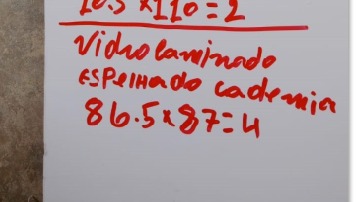 10.5 x 110 = 2
Vidro laminado
ESPELHADO cademia
86.5 x 87 = 4